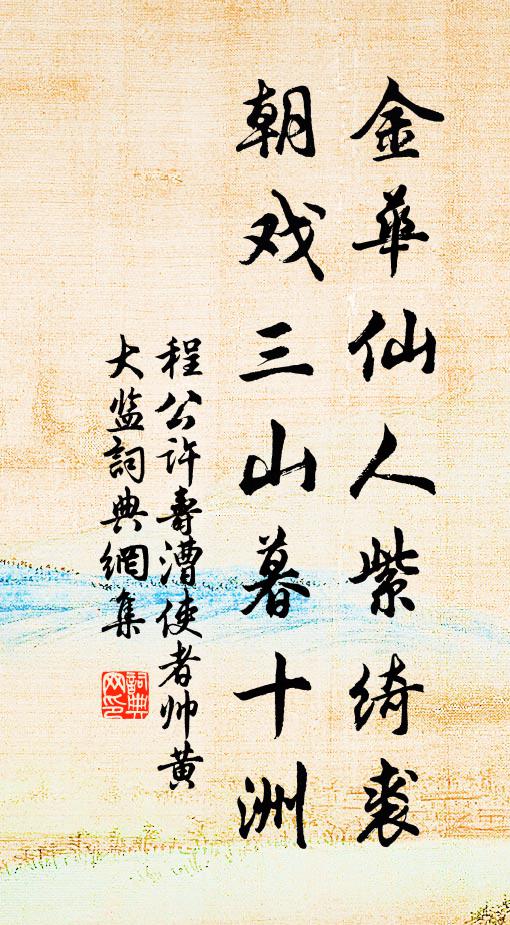 金華仙人紫绮裘
朝戏三山暮十洲
程公许壽漕使者帅黄
大监詞典網集
詞典
网印